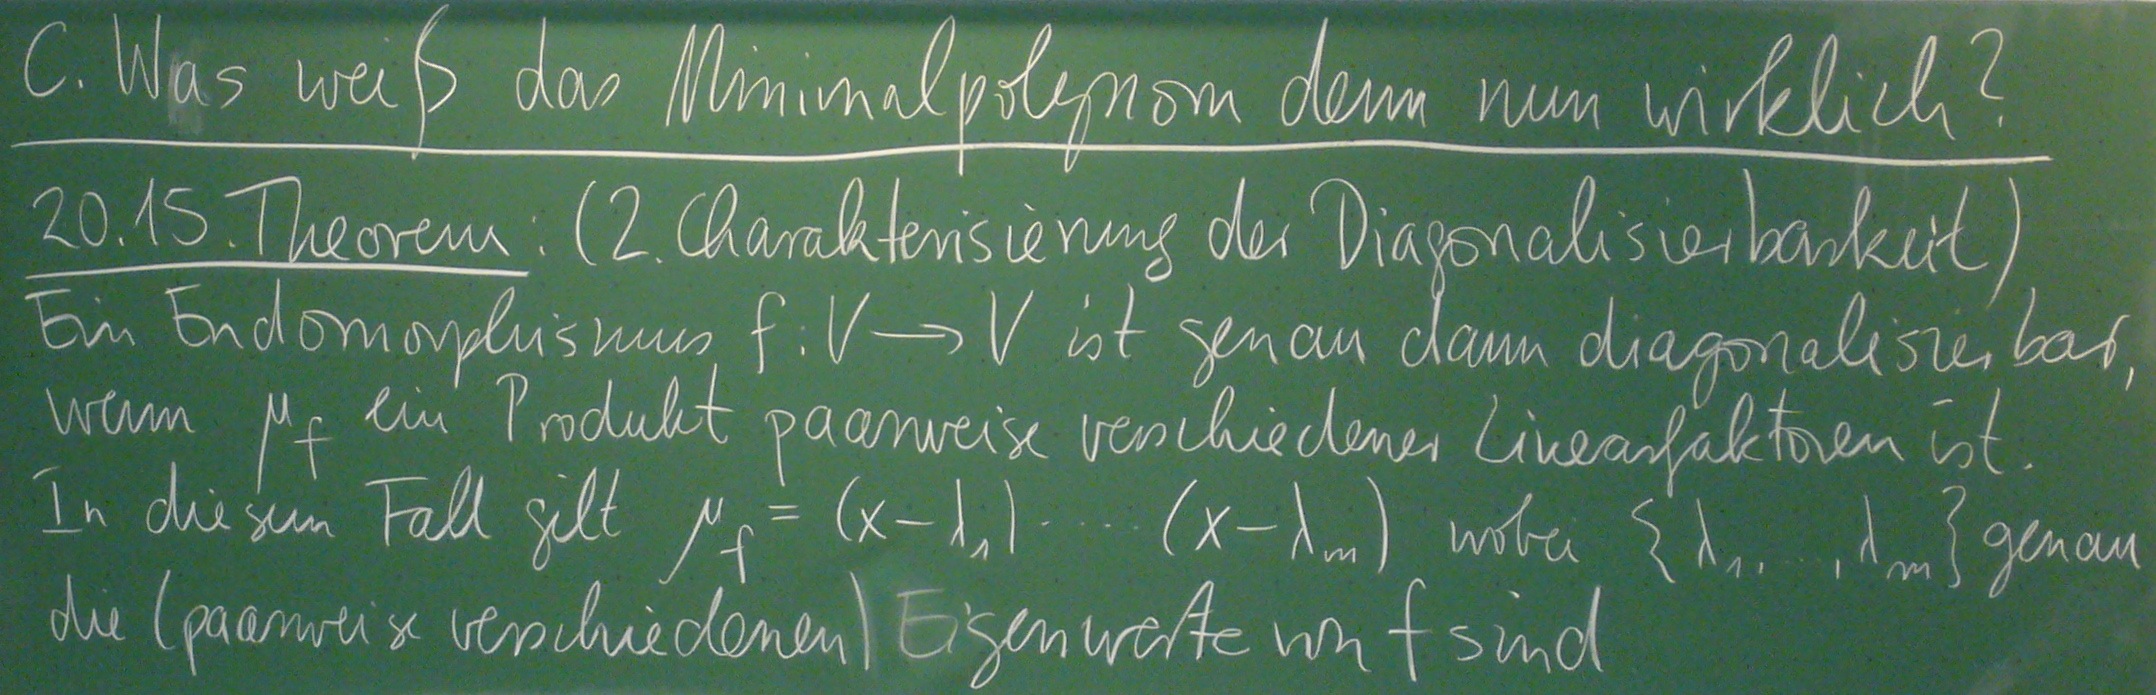 C. Was weiß das Minimalpolynom denn nun wirklich?
20.15. Theorem: (2. Charakterisierung der Diagonalisierbarkeit)
Ein Endomorphismus f: V → V ist genau dann diagonalisierbar,
wenn μ_f ein Produkt paarweise verschiedener Linearfaktoren ist.
In diesem Fall gilt μ_f = (x-λ₁)·....(x-λₘ) wobei {λ₁,...,λₘ} genau
die (paarweise verschiedenen) Eigenwerte von f sind